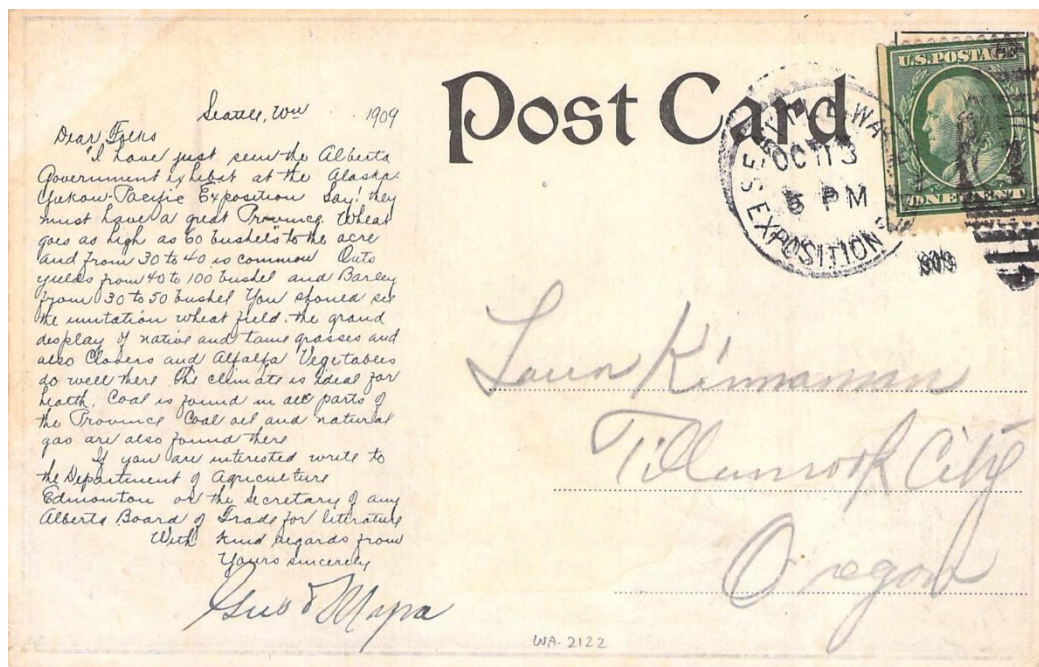 Post Card
U.S. POSTAGE
ONE CENT
SEATTLE, WA
OCT 13
5 PM
EXPOSITION
1909
Seattle, Wn 1909
Dear Folks
"I have just seen the Alberta
Government exhibit at the Alaska-
Yukon-Pacific Exposition Say! they
must have a great Province. Wheat
goes as high as 60 bushels" to the acre
and from 30 to 40 is common Oats
yields from 40 to 100 bushel and Barley
from 30 to 50 bushel You should see
the imitation wheat field, the grand
display of native and tame grasses and
also Clovers and Alfalfa Vegetables
do well there The climate is ideal for
health. Coal is found in all parts of
the Province Coal oil and natural
gas are also found there
If you are interested write to
the Department of Agriculture
Edmonton or the Secretary of any
Alberta Board of Trade for literature
With kind regards from
Yours sincerely
Kinnaman
Tillamook City
Oregon
WA-2122